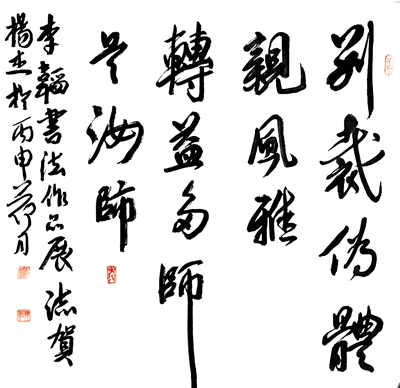 別裁偽體
親風雅
轉益多師
是汝師
李韜書法作品展誌賀
楊杰於丙申月